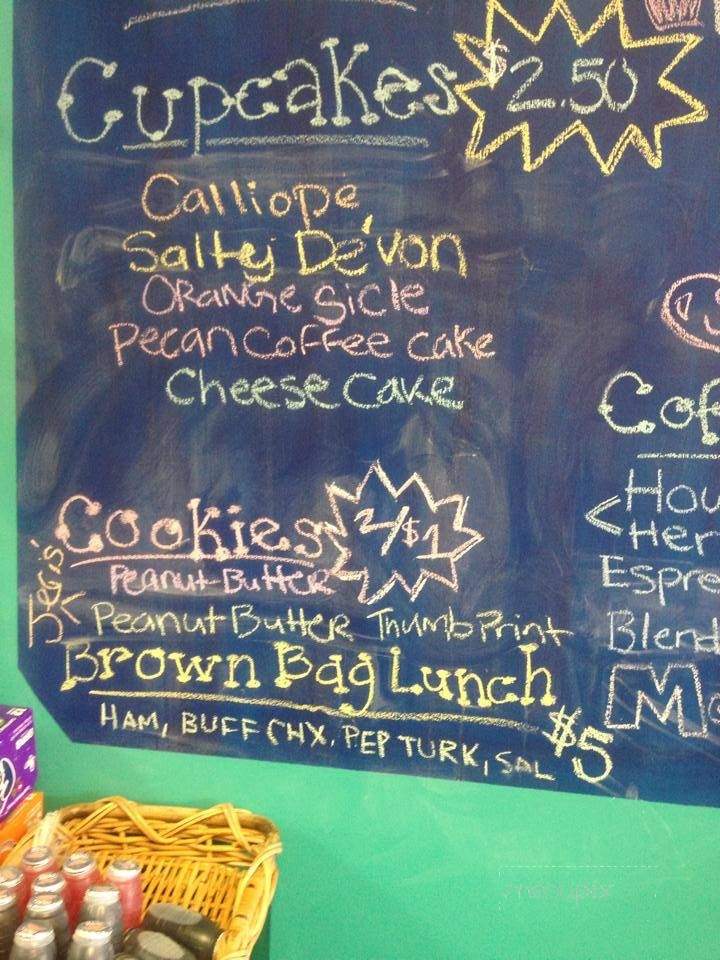 Cupcakes $2.50
Calliope
Salty De'von
Orange Sicle
Pecan Coffee cake
Cheese Cake
Cookies 2/$1
Peanut-Butter
Jeris'
Peanut Butter Thumb Print
Brown Bag Lunch
HAM, BUFF CHX, PEP TURK, SAL $5
Cof
Hou
Her
Espre
Blend